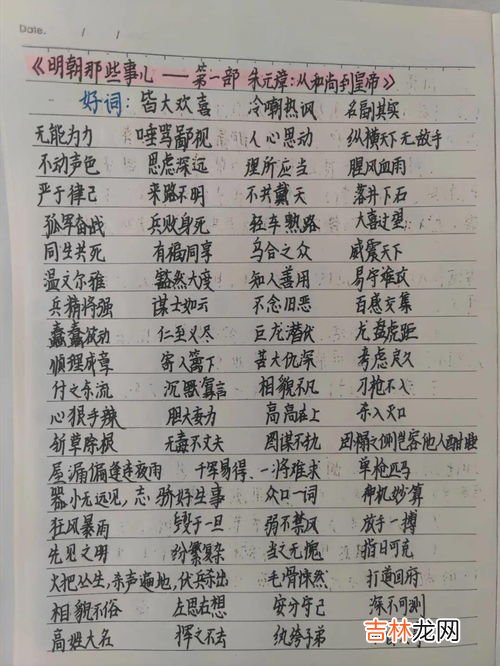 Date. / /
《明朝那些事儿 —— 第一部 朱元璋:从和尚到皇帝》
好词: 皆大欢喜 冷嘲热讽 名副其实
无能为力 唾骂鄙视 人心思动 纵横天下无敌手
不动声色 思虑深远 理所应当 腥风血雨
严于律己 来路不明 不共戴天 落井下石
孤军奋战 兵败身死 轻车熟路 大喜过望
同生共死 有福同享 乌合之众 威震天下
温文尔雅 豁然大度 知人善用 易守难攻
兵精将强 谋士如云 不念旧恶 百感交集
蠢蠢欲动 仁至义尽 巨龙潜伏 龙盘虎距
顺理成章 寄人篱下 苦大仇深 考虑良久
付之东流 沉默寡言 相貌不凡 刀枪不入
心狠手辣 胆大妄为 高高在上 杀人灭口
斩草除根 无毒不丈夫 图谋不轨 困榻之侧岂容他人酣睡
屋漏偏逢连夜雨 千军易得、一将难求 单枪匹马
器小无远见,志骄好生事 众口一词 神机妙算
狂风暴雨 毁于一旦 弱不禁风 放手一搏
先见之明 纷繁复杂 当之无愧 指日可克
火把丛生,杀声遍地,伏兵杀出 毛骨悚然 打道回府
相貌不俗 左思右想 安分守己 深不可测
高姓大名 挥之不去 纨绔子弟
吉林龙网